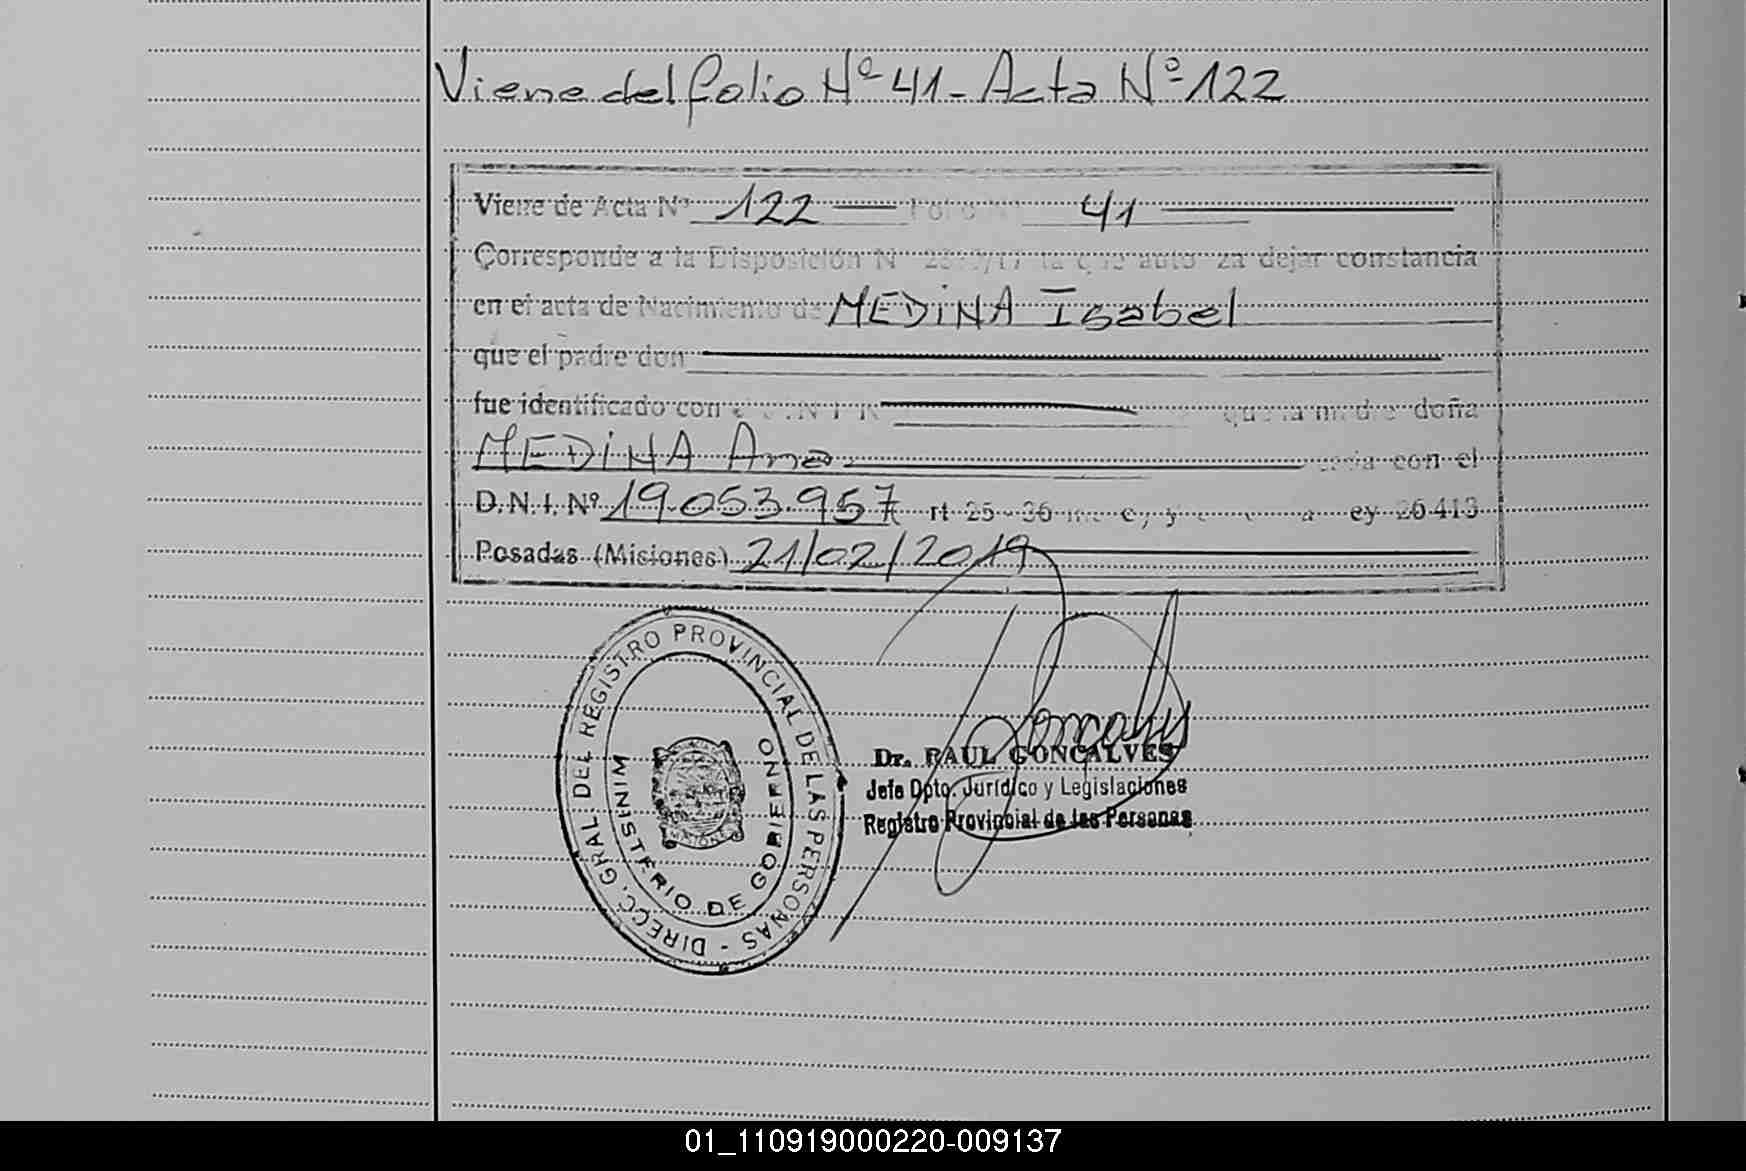 Viene del folio Nº 41 - Acta Nº 122
Viene de Acta Nº 122 Folio Nº 41
Corresponde a la Disposición Nº la que autoriza dejar constancia
en el acta de Nacimiento de MEDINA Isabel
que el padre don
fue identificado con que la madre doña
MEDINA Ana con el
D.N.I. Nº 19.053.957 rt 25 - 36 ey 26413
Posadas (Misiones) 21/02/2019
DIRECC. GRAL. DEL REGISTRO PROVINCIAL DE LAS PERSONAS -
MINISTERIO DE GOBIERNO
Dr. RAUL GONCALVES
Jefe Dpto. Jurídico y Legislaciones
Registro Provincial de las Personas
01_110919000220-009137